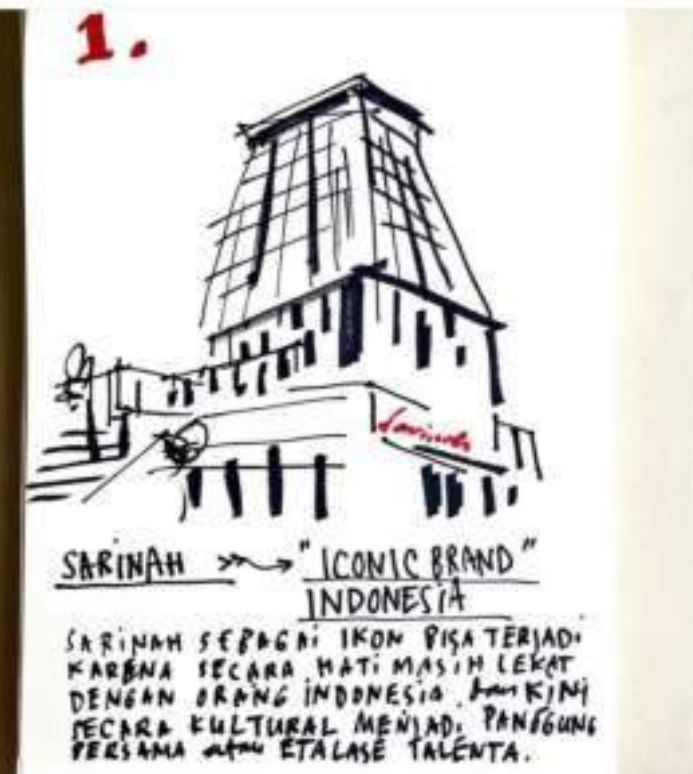 1.
Sarinah
SARINAH "ICONIC BRAND"
INDONESIA
SARINAH SEBAGAI IKON BISA TERJADI
KARENA SECARA HATI MASIH LEKAT
DENGAN ORANG INDONESIA dan KINI
SECARA KULTURAL MENJADI PANGGUNG
BERSAMA atau ETALASE TALENTA.